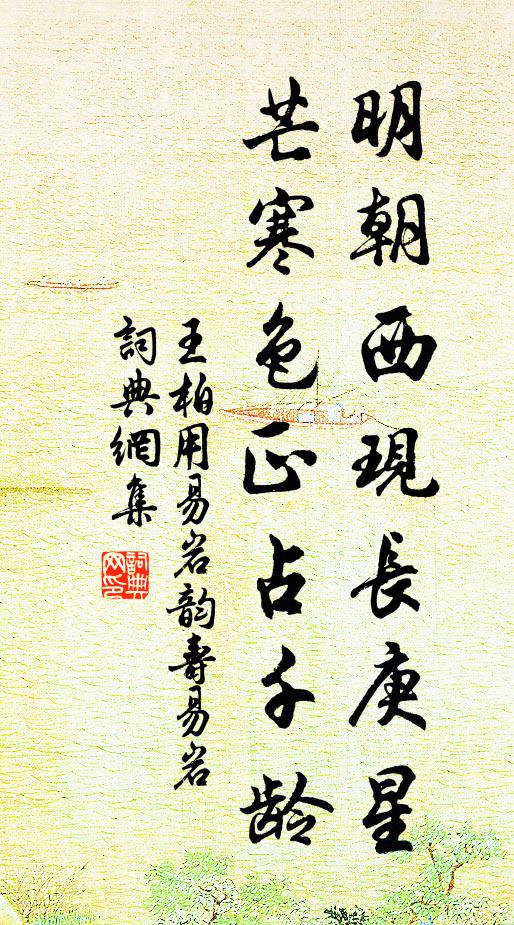 明朝西現長庚星
芒寒色正占千齡
王柏用易岩韵壽易岩
詞典網集
詞典网印